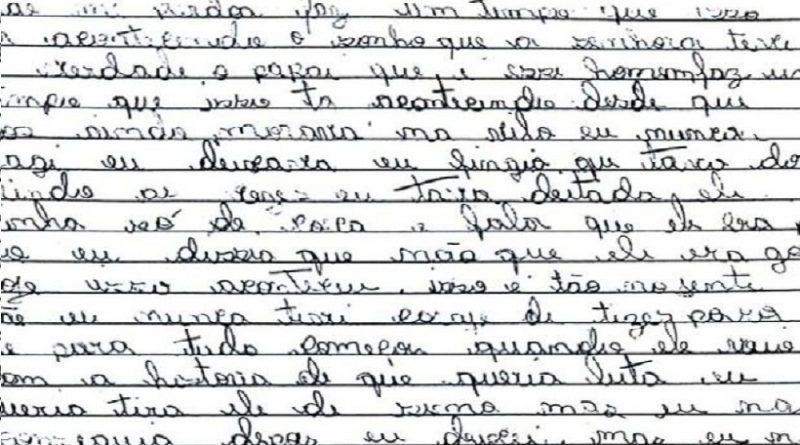 me perdoa faz um tempo que isso
acontecendo o sonho que a senhora teve
verdade o papai que e esse homem faz u
tempo que isso ta acontecendo desde que
ainda morava na vila eu nunca
agi eu deixava eu fingia qu tava do
indo as vezes eu tava deitada ele
inha só de e fala que ele era
e eu dizia que não que ele era
isso aconteceu isso é tão no sente
ãe eu nunca tive coraje de
e para tudo começou quando ele
om a historia de que queria luta eu
ueria tira ele de sima mas eu na
conseguia eu deixei mas eu n